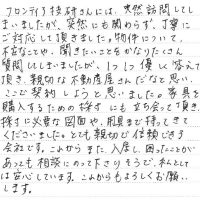 フロンティア技研さんには、突然訪問してし
まいましたが、突然にも関わらず、丁寧に
ご対応して頂きました。物件について、
不安なことや、聞きたいことをかなりたくさん
質問してしまいましたが、1つ1つ優しく答えて
頂き、親切な不動産屋さんだなと思い、
ここで契約しようと思いました。家具を
購入するための採寸にも立ち会って頂き、
採寸に必要な図面や、用具まで持ってきて
くださいました。とても親切で信頼できる
会社です。これから、また、入居し、困ったことが
あっても相談にのって下さりそうで、私として
は安心しています。これからもよろしくお願い
します。